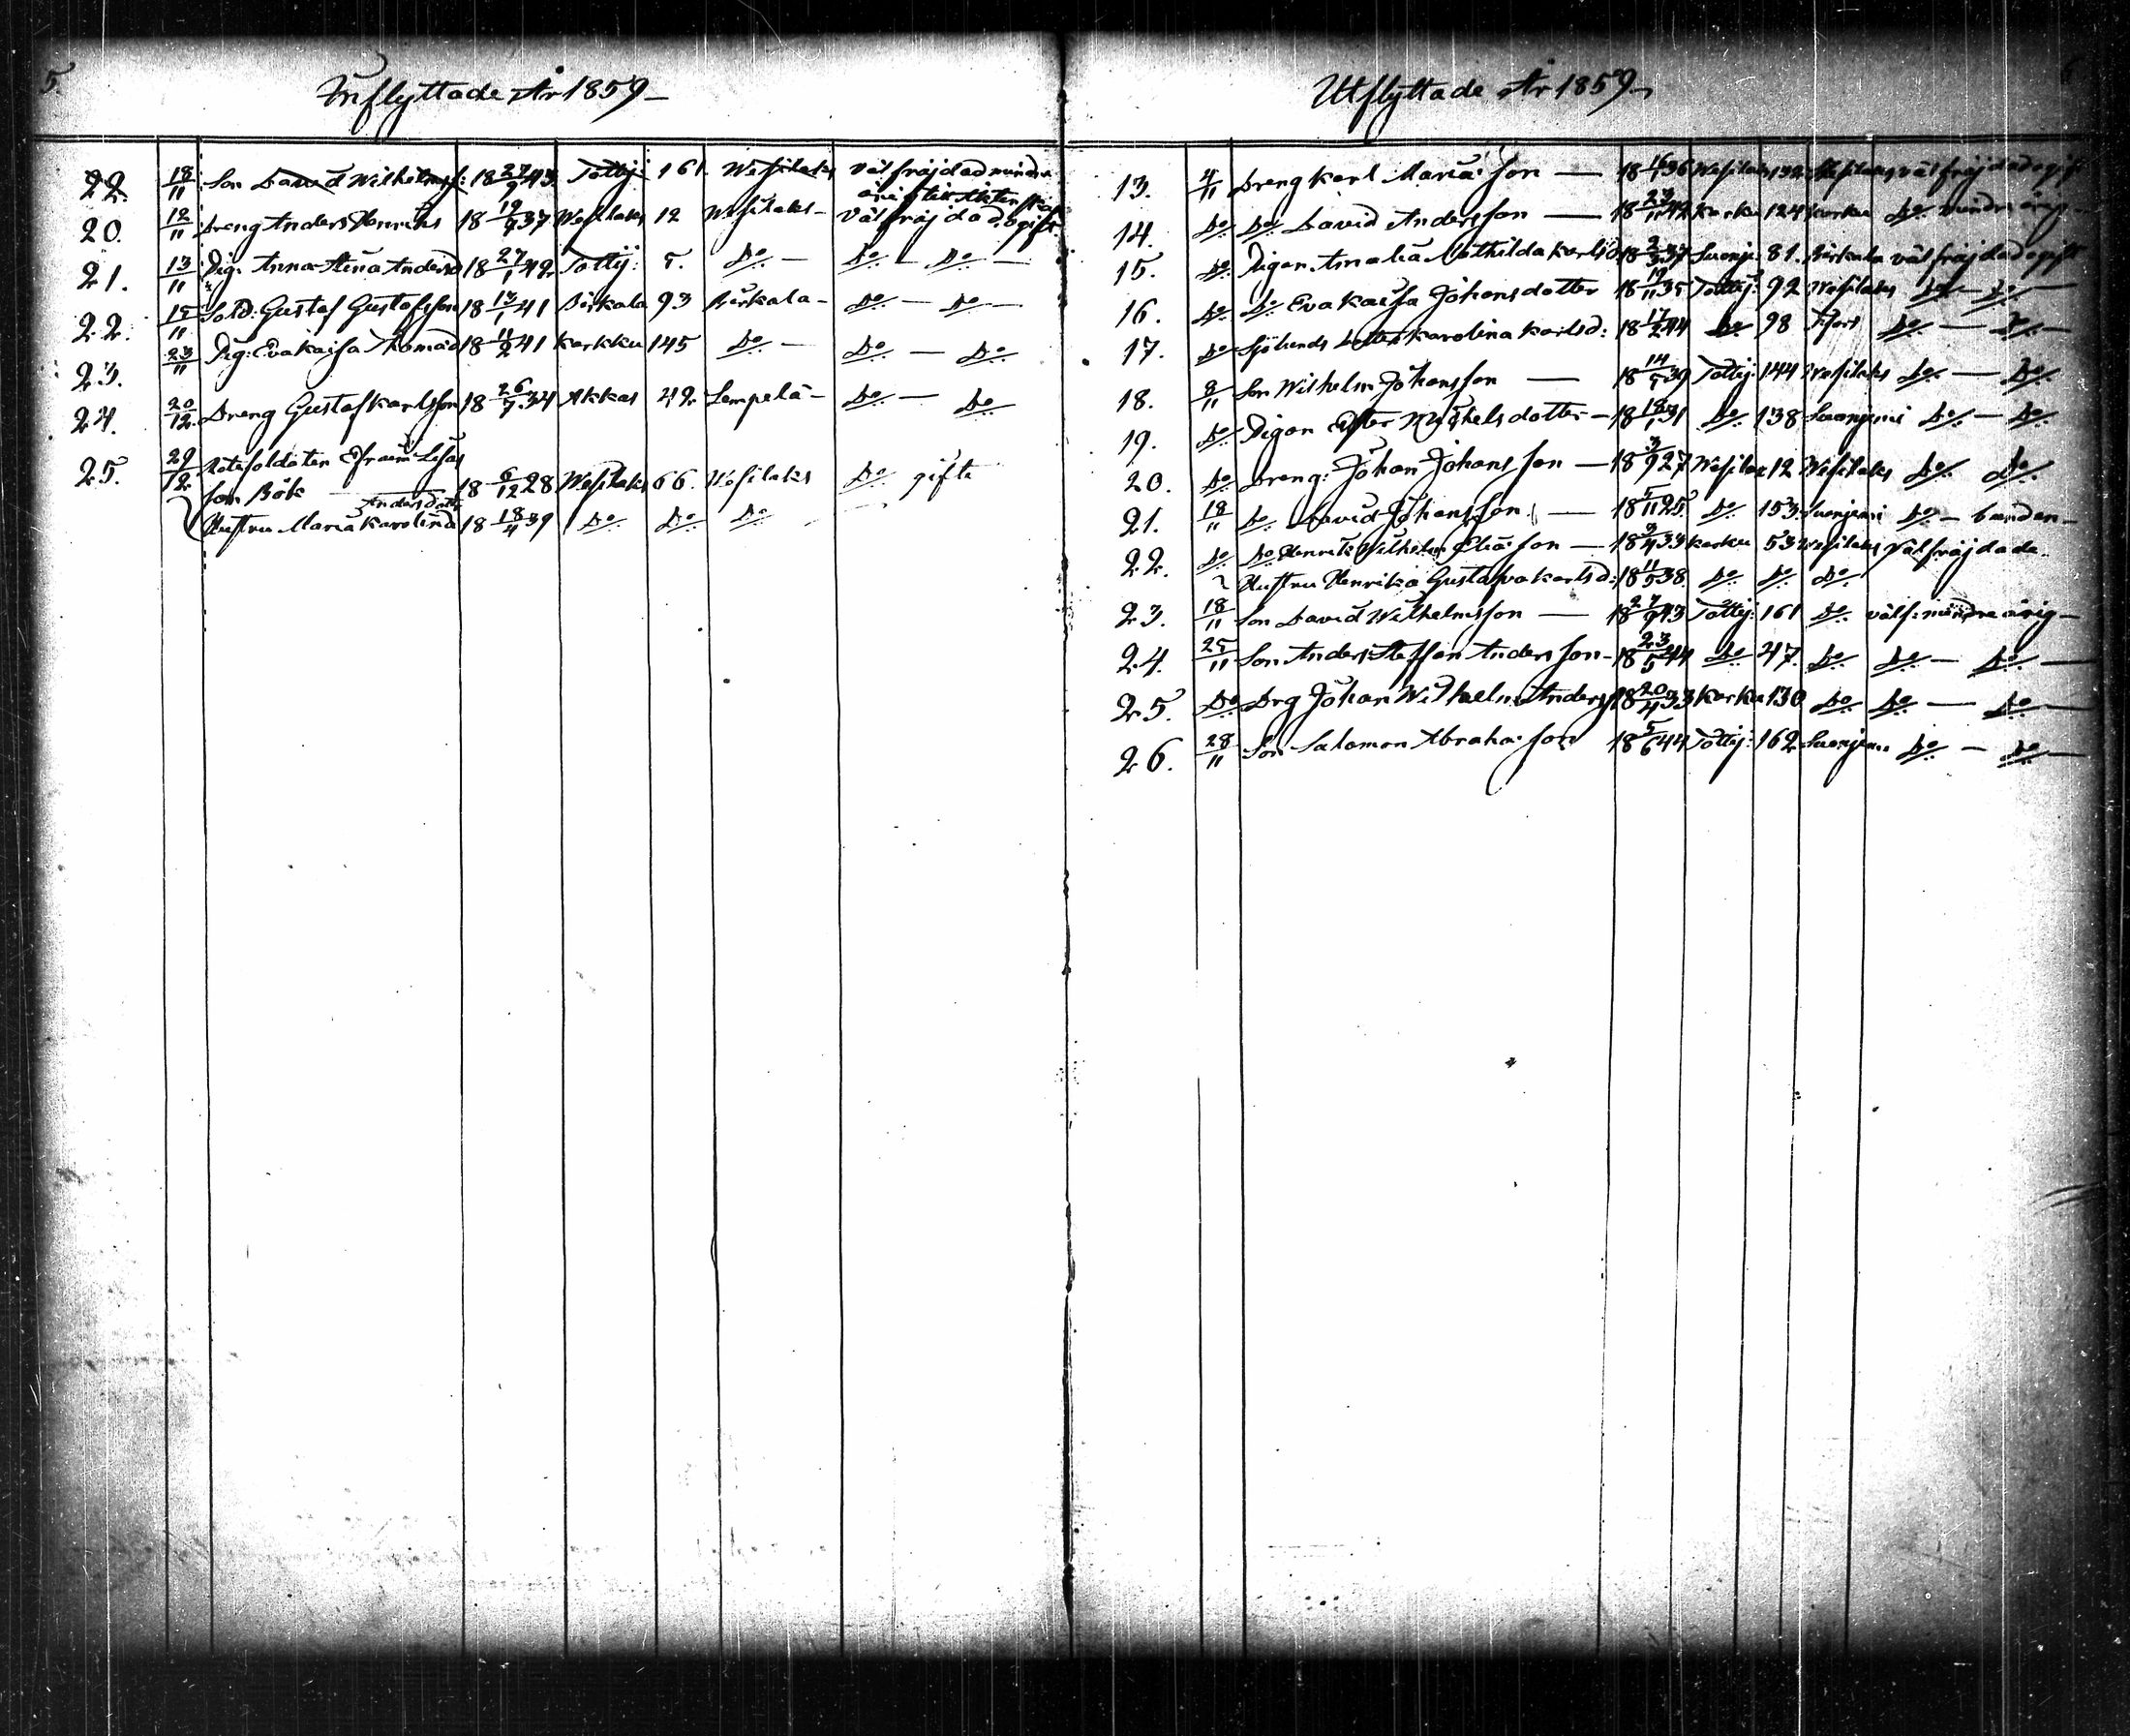 5.
Inflyttade År 1859
22. 18/11 Son David Wilhelmsf: 18 27/9 43 Tottij 161. Wesilaks väl fräjdad mindre
20. 12/11 Dreng Anders Henriks 18 19/9 37 Wesilaks 12 Wesilaks - Välfräjdad ogift
21. 13/11 Pig: Anna Stina Andersd 18 27/1 42 Tottij: 5. Do - Do - Do -
22. 15/11 Sold. Gustaf Gustafsson 18 17/1 41 Birkala 93 Birkala - Do - Do -
23. 23/11 Pig: Eva Kaisa Thomasd 18 11/2 41 Karkku 145 Do - Do - Do
24. 20/12 Dreng Gustaf Karlsson 18 26/7 34 Akkas 42 Lempelä - Do - Do
25. 29/12 Rotesoldaten Efraim Lisas
son Bök 18 6/12 28 Wesilaks 66. Wesilaks Do gifte
Andersdotter
Hustru Maria Karolina 18 18/4 39 Do Do Do
Utflyttade År 1859
13. 4/11 Dreng Karl Maria: son — 18 16/1 36 Wesilaks 132 Wesilaks väl fräjdad ogift
14. Do Do David Andersson — 18 23/11 42 Karku 124 Karku Do mindre årig
15. Do Pigan Amalia Mathilda Karlsd 18 2/3 37 Suonje 81. Birkala väl fräjdad ogift
16. Do Do Eva Kaisa Johansdotter 18 19/11 35 Tottij: 92 Wesilaks Do - Do -
17. Do Karolina Karlsd: 18 17/2 44 Do 98 Do - Do -
18. 9/11 Son Wilhelm Johansson — 18 14/5 39 Tottij: 144 Wesilaks Do - Do
19. Do Pigan Ester Michelsdotter - 18 18/1 31 Do 138 Suonjemi Do - Do
20. Do Dreng: Johan Johansson - 18 3/9 27 Wesilax 12 Wesilaks Do Do
21. 18/11 Do David Johansson — 18 5/11 25 Do 153 Suonjemi Do -
22. Do Do Henrik Wilhelm Elia: son - 18 9/4 33 Karku 53 Wesilaks Välfräjdade
Hustru Henrika Gustafva Karlsd: 18 11/5 38 Do Do Do
23. 18/11 Son David Wilhelmsson — 18 27/9 43 Tottij: 161 Do välf: mindre årig -
24. 25/11 Son Anders Steffan Andersson - 18 23/5 44 Do 47. Do Do - Do -
25. Do Drg Johan Wilhelm Andersf 18 20/4 33 Karku 130 Do Do - Do -
26. 28/11 Son Salomon Abraha: son 18 5/6 44 Tottij: 162 Suonjemi Do - Do -